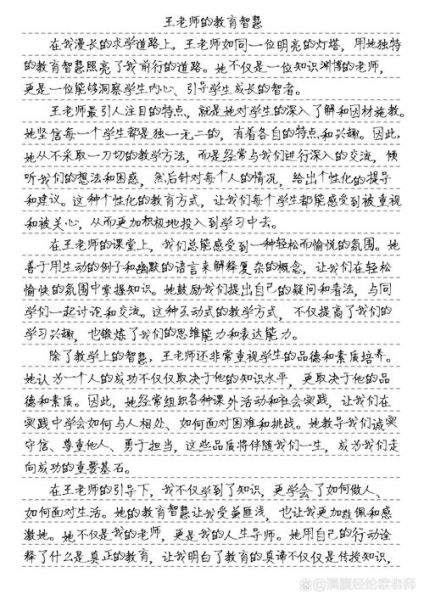 王老师的教育智慧
在我漫长的求学道路上，王老师如同一位明亮的灯塔，用她独特
的教育智慧照亮了我前行的道路。她不仅是一位知识渊博的老师，
更是一位能够洞察学生内心、引导学生成长的智者。
王老师最引人注目的特点，就是她对学生的深入了解和因材施教。
她坚信每一个学生都是独一无二的，有着各自的特点和兴趣。因此，
她从不采取一刀切的教学方法，而是经常与我们进行深入的交流，倾
听我们的想法和困惑，然后针对每个人的情况，给出个性化的指导
和建议。这种个性化的教育方式，让我们每个学生都能感受到被重视
和被关心，从而更加积极地投入到学习中去。
在王老师的课堂上，我们总能感受到一种轻松而愉悦的氛围。她
善于用生动的例子和幽默的语言来解释复杂的概念，让我们在轻松
愉快的氛围中掌握知识。她鼓励我们提出自己的疑问和看法，与同
学们一起讨论和交流。这种互动式的教学方式，不仅提高了我们的
学习兴趣，也锻炼了我们的思维能力和表达能力。
除了教学上的智慧，王老师还非常重视学生的品德和素质培养。
她认为一个人的成功不仅仅取决于他的知识水平，更取决于他的品
德和素质。因此，她经常组织各种课外活动和社会实践，让我们在
实践中学会如何与人相处、如何面对困难和挑战。她教导我们诚实
守信、尊重他人、勇于担当，这些品质将伴随我们一生，成为我们走
向成功的重要基石。
在王老师的引导下，我不仅学到了知识，更学会了如何做人、
如何面对生活。她的教育智慧让我受益匪浅，也让我更加敬佩和感
激她。她不仅是我的老师，更是我的人生导师。她用自己的行动诠
释了什么是真正的教育，让我明白了教育的真谛不仅仅是传授知识，